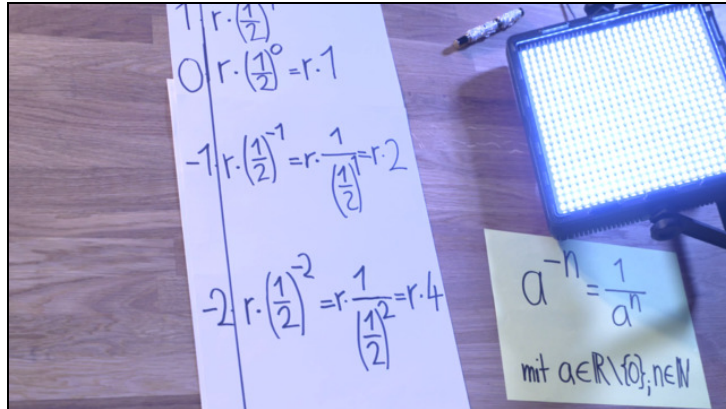 1 r·(1/2)¹
0 r·(1/2)⁰ = r·1
-1 r·(1/2)⁻¹ = r·1/(1/2)¹ = r·2
-2 r·(1/2)⁻² = r·1/(1/2)² = r·4
a⁻ⁿ = 1/aⁿ
mit a∈ℝ\{0}; n∈ℕ